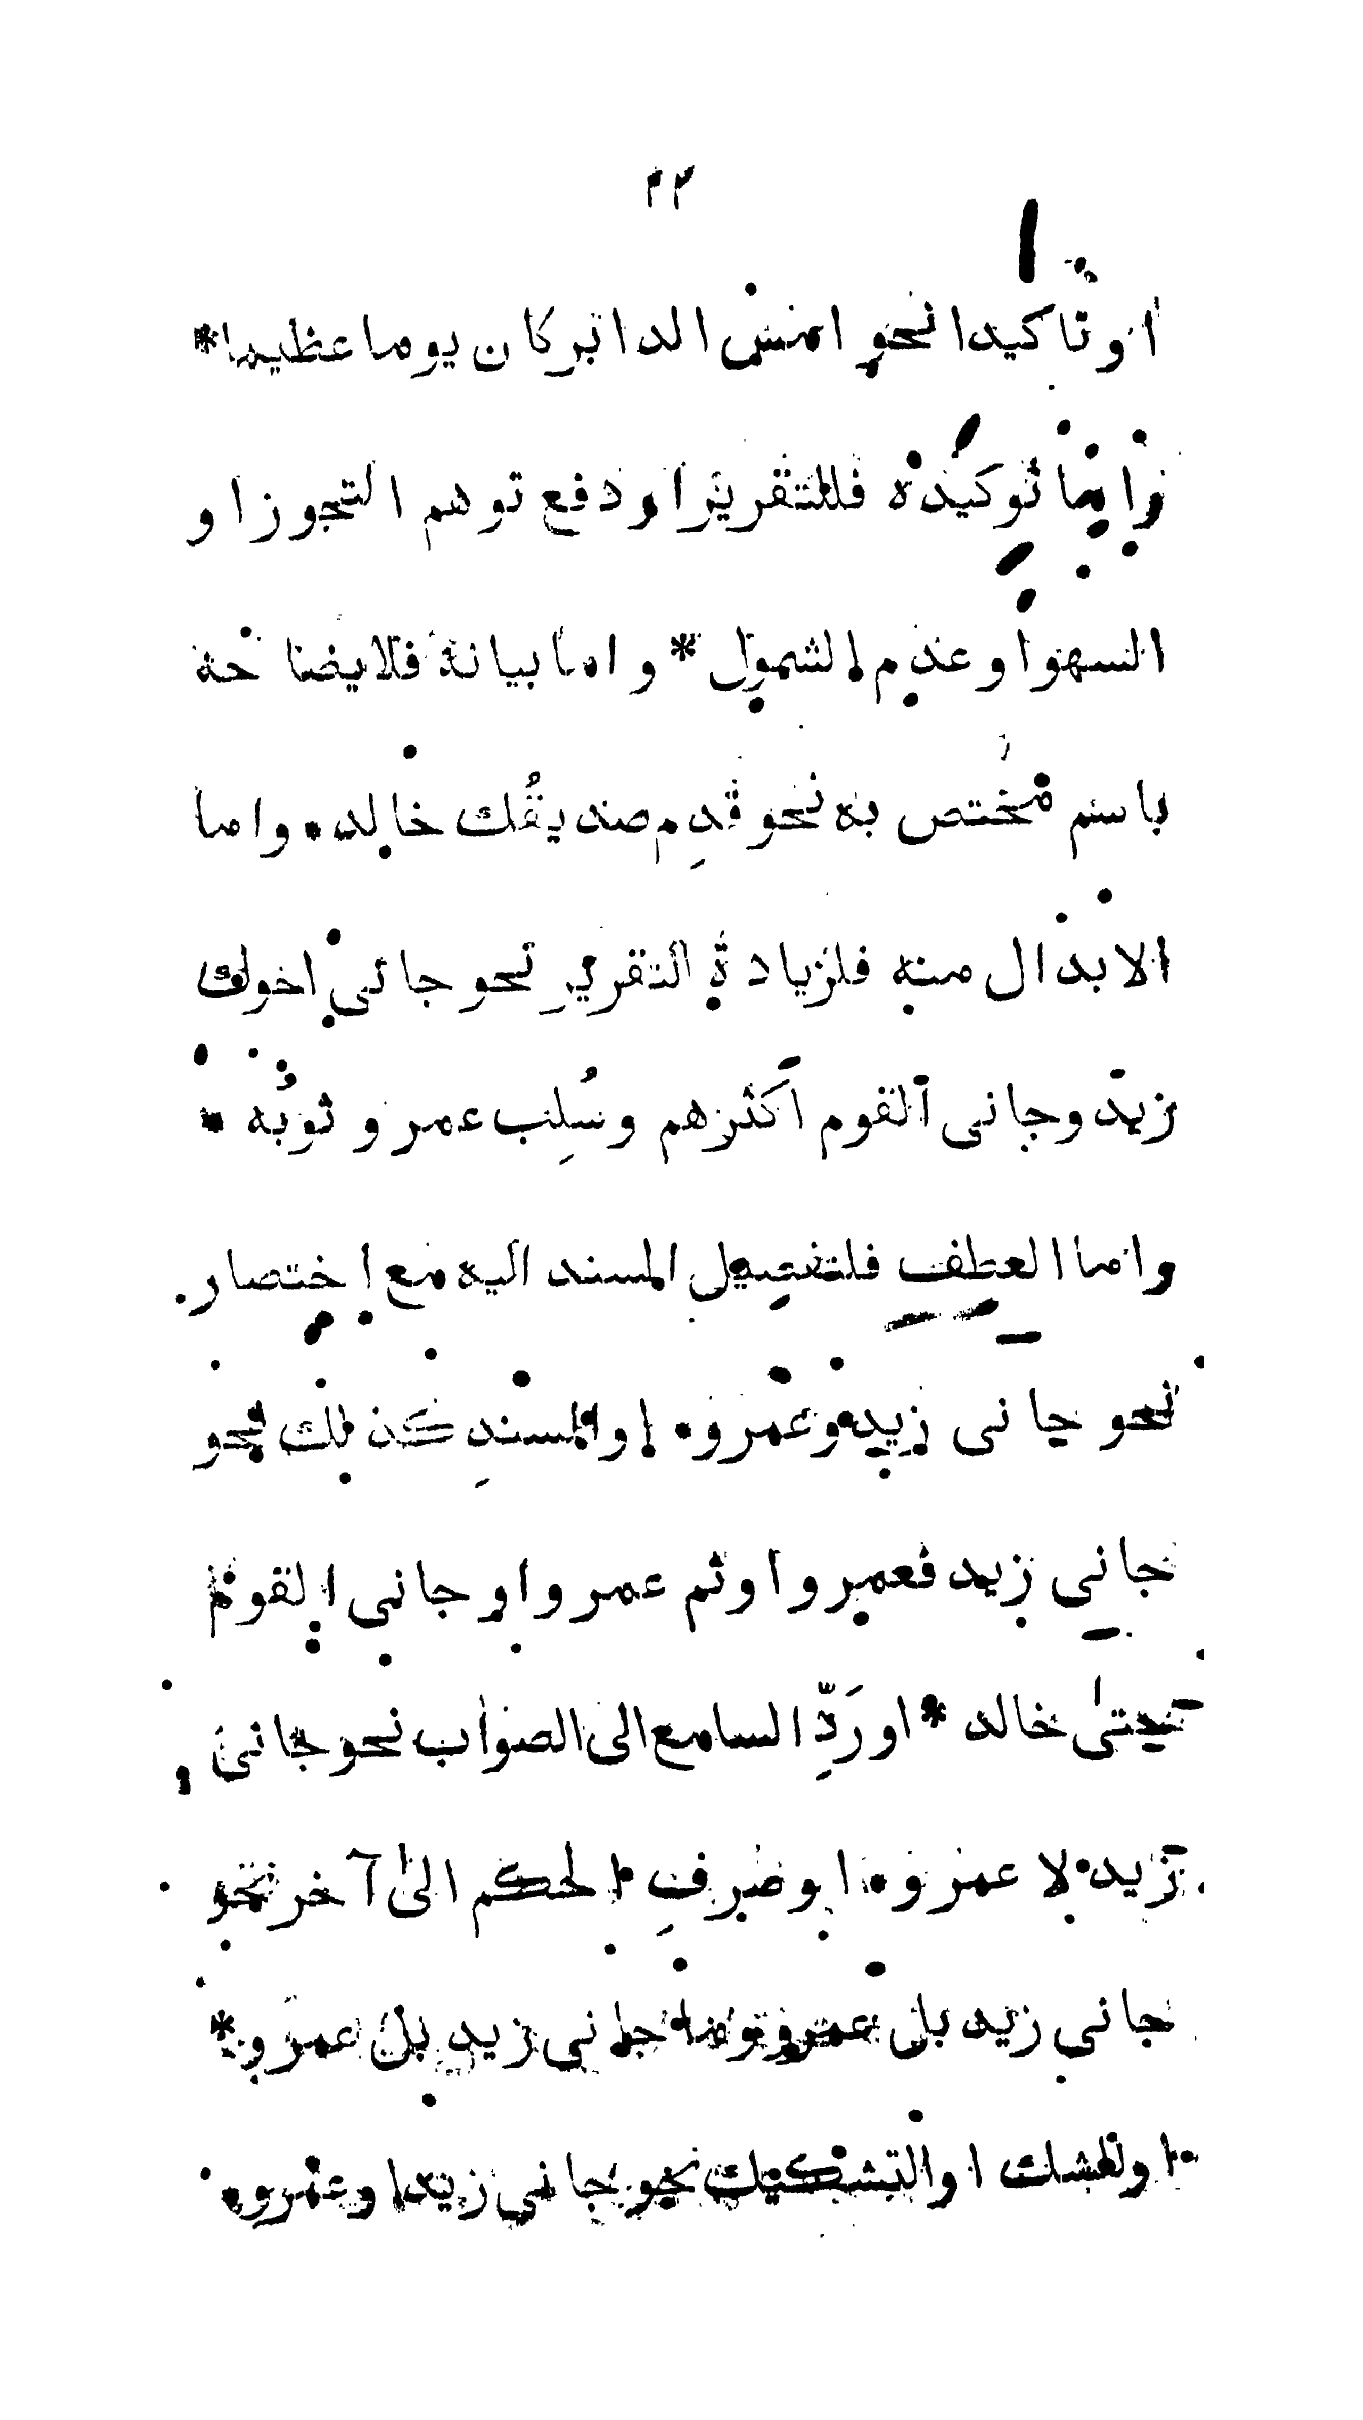 ٢٢
او تاكيدا نحو امس الدابر كان يوما عظيما *
واما توكيده فللتقرير او دفع توهم التجوز او
السهو او عدم الشمول * واما بيانه فلايضاحه
باسم مختص به نحو قدم صديقك خالد • واما
الابدال منه فلزيادة التقرير نحو جائى اخوك
زيد وجانى القوم اكثرهم وسُلِب عمرو ثوبُه *
واما العطف فلتفصيل المسند اليه مع اختصار
نحو جانى زيد وعمرو • او المسندِ كذلك نحو
جانى زيد فعمرو او ثم عمرو او جانى القوم
حتى خالد * او رَدِّ السامع الى الصواب نحو جانى
زيد لا عمرو • او صرفِ الحكم الى آخر نحو
جانى زيد بل عمرو وما جانى زيد بل عمرو *
او للشك او التشكيك نحو جانى زيد او عمرو •